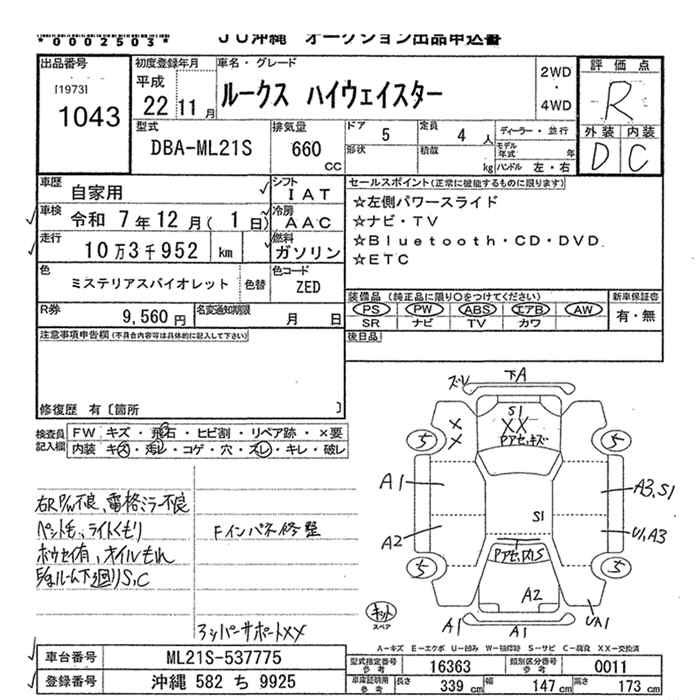 *0002503*
JU沖縄 オークション出品申込書
出品番号
[1973]
1043
初度登録年月
平成
22年11月
車名・グレード
ルークス ハイウェイスター
2WD
・
4WD
評価点
R
外装 内装
D C
型式
DBA-ML21S
排気量
660
CC
ドア 5
定員 4 人
形状
積載 kg
ディーラー・並行
モデル年式 年
ハンドル 左・右
車歴
自家用
シフト
IAT
車検
令和 7年12月(1日)
冷房
AAC
走行
10万3千952 km
燃料
ガソリン
色
ミステリアスバイオレット
色替
色コード
ZED
R券
9,560円
名変通知期限
月 日
セールスポイント(正常に機能するものに限ります)
☆左側パワースライド
☆ナビ・TV
☆Bluetooth・CD・DVD
☆ETC
装備品 (純正品に限り○をつけてください)
PS PW ABS エアB AW
SR ナビ TV カワ
新車保証書
有・無
後日品
注意事項申告欄(不具合内容等は具体的に記入して下さい)
修復歴 有〔箇所 〕
検査員記入欄
FW キズ・飛石・ヒビ割・リペア跡・×要
内装 キズ・汚レ・コゲ・穴・スレ・キレ・破レ
右RP/W不良、電格ミラー不良
ペット毛、ライトくもり
ホウセイ有、オイルもれ
Fインパネ修整
アッパーサポートXX
ズレ
下A
S1
XX
Pアセ、キズ
X
X
5
5
A1
A3,S1
S1
A2
U1,A3
5
5
A2
キット
スペア
A1
A1
UA1
A-キズ E-エクボ U-凹み W-補修跡 S-サビ C-腐食 XX-交換済
車台番号
ML21S-537775
登録番号
沖縄 582 ち 9925
型式指定番号
参考
16363
類別区分番号
参考
0011
車庫証明用
参考
長さ 339 cm
幅 147 cm
高さ 173 cm